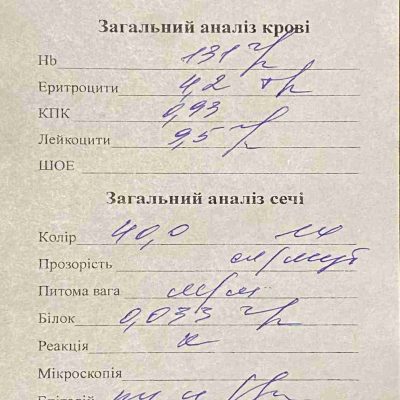 Загальний аналіз крові
Hb 131 г/л
Еритроцити 4,2 т/л
КПК 0,93
Лейкоцити 9,5 г/л
ШОЕ
Загальний аналіз сечі
Колір 40,0
Прозорість сл/мут
Питома вага м/м
Білок 0,033 г/л
Реакція к
Мікроскопія
Епітелій